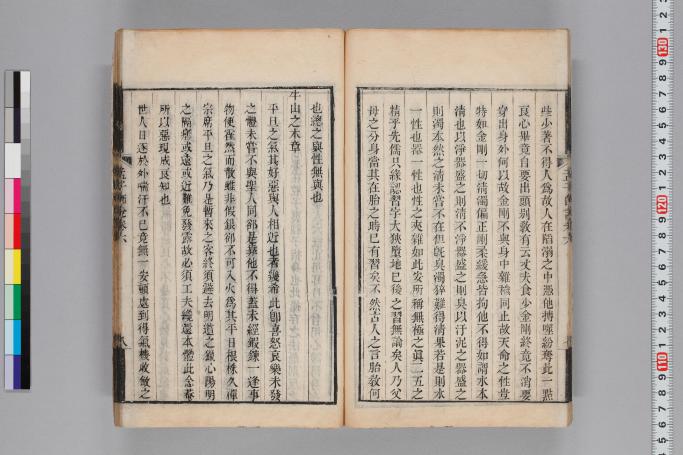 些小著不得人爲故人在陷溺之中憑他搏噬紛奪此一點
良心畢竟自要出頭別教有云丈夫食少金剛終竟不消要
穿出身外何以故金剛不與身中雜穢同止故天命之性豈
特如金剛一切清濁偏正剛柔緩急皆拘他不得如謂水本
清也以淨器盛之則清不淨器盛之則臭以汙泥之器盛之
則濁本然之清未嘗不在但旣臭濁猝難得清果若是則水
一性也器一性也性之夾雜如此安所稱無極之眞二五之
精乎先儒只緣認習字大狹墮地已後之習無論矣人乃父
母之分身當其在胎之時已有習矣不然古人之言胎敎何
也總之與性無與也
牛山之木章
平旦之氣其好惡與人相近也者幾希此卽喜怒哀樂未發
之體未嘗不與聖人同卻是靠他不得蓋未經鍛鍊一逢事
物便霍然而散雖非假銀卻不可入火爲其平日根株久禪
宗席平旦之氣乃是暫來之客終須避去明道之獵心陽明
之隔瘧或遠或近難免發露故必須工夫纔還本體此念菴
所以惡現成良知也
世人日逐於外喘汗不已竟無一安頓處到得氣機收斂之